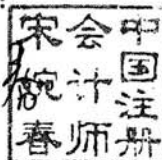 中国注册
会计师
宋婉春